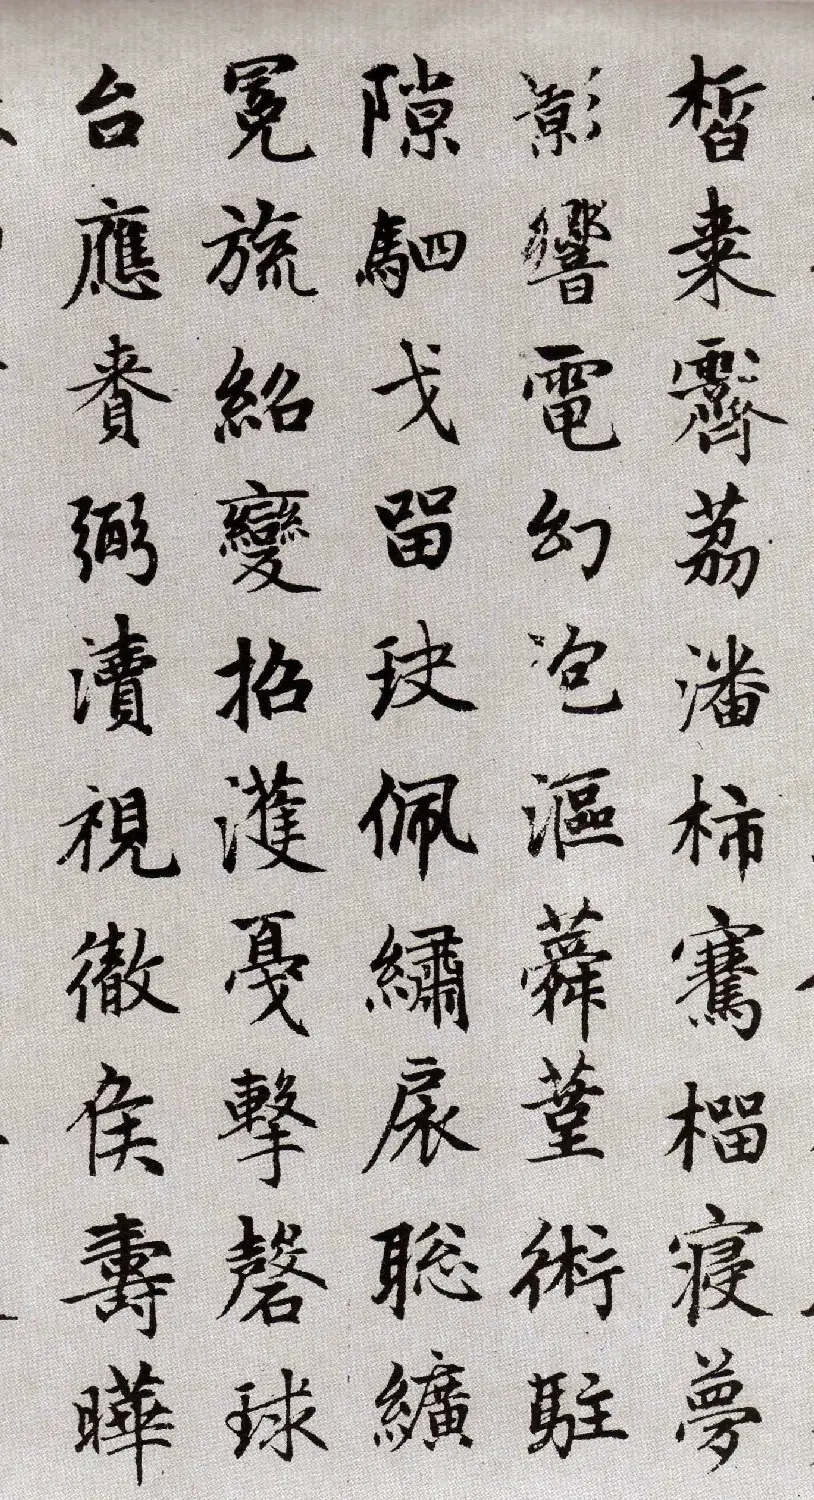 晳棗霽荔潘柿騫榴寢夢
影響電幻泡漚蕣菫術駐
隙駟戈留玦佩繡扆聡纊
冕旒紹變招濩戛擊磬球
台應賚弼瀆視徹侯壽曄